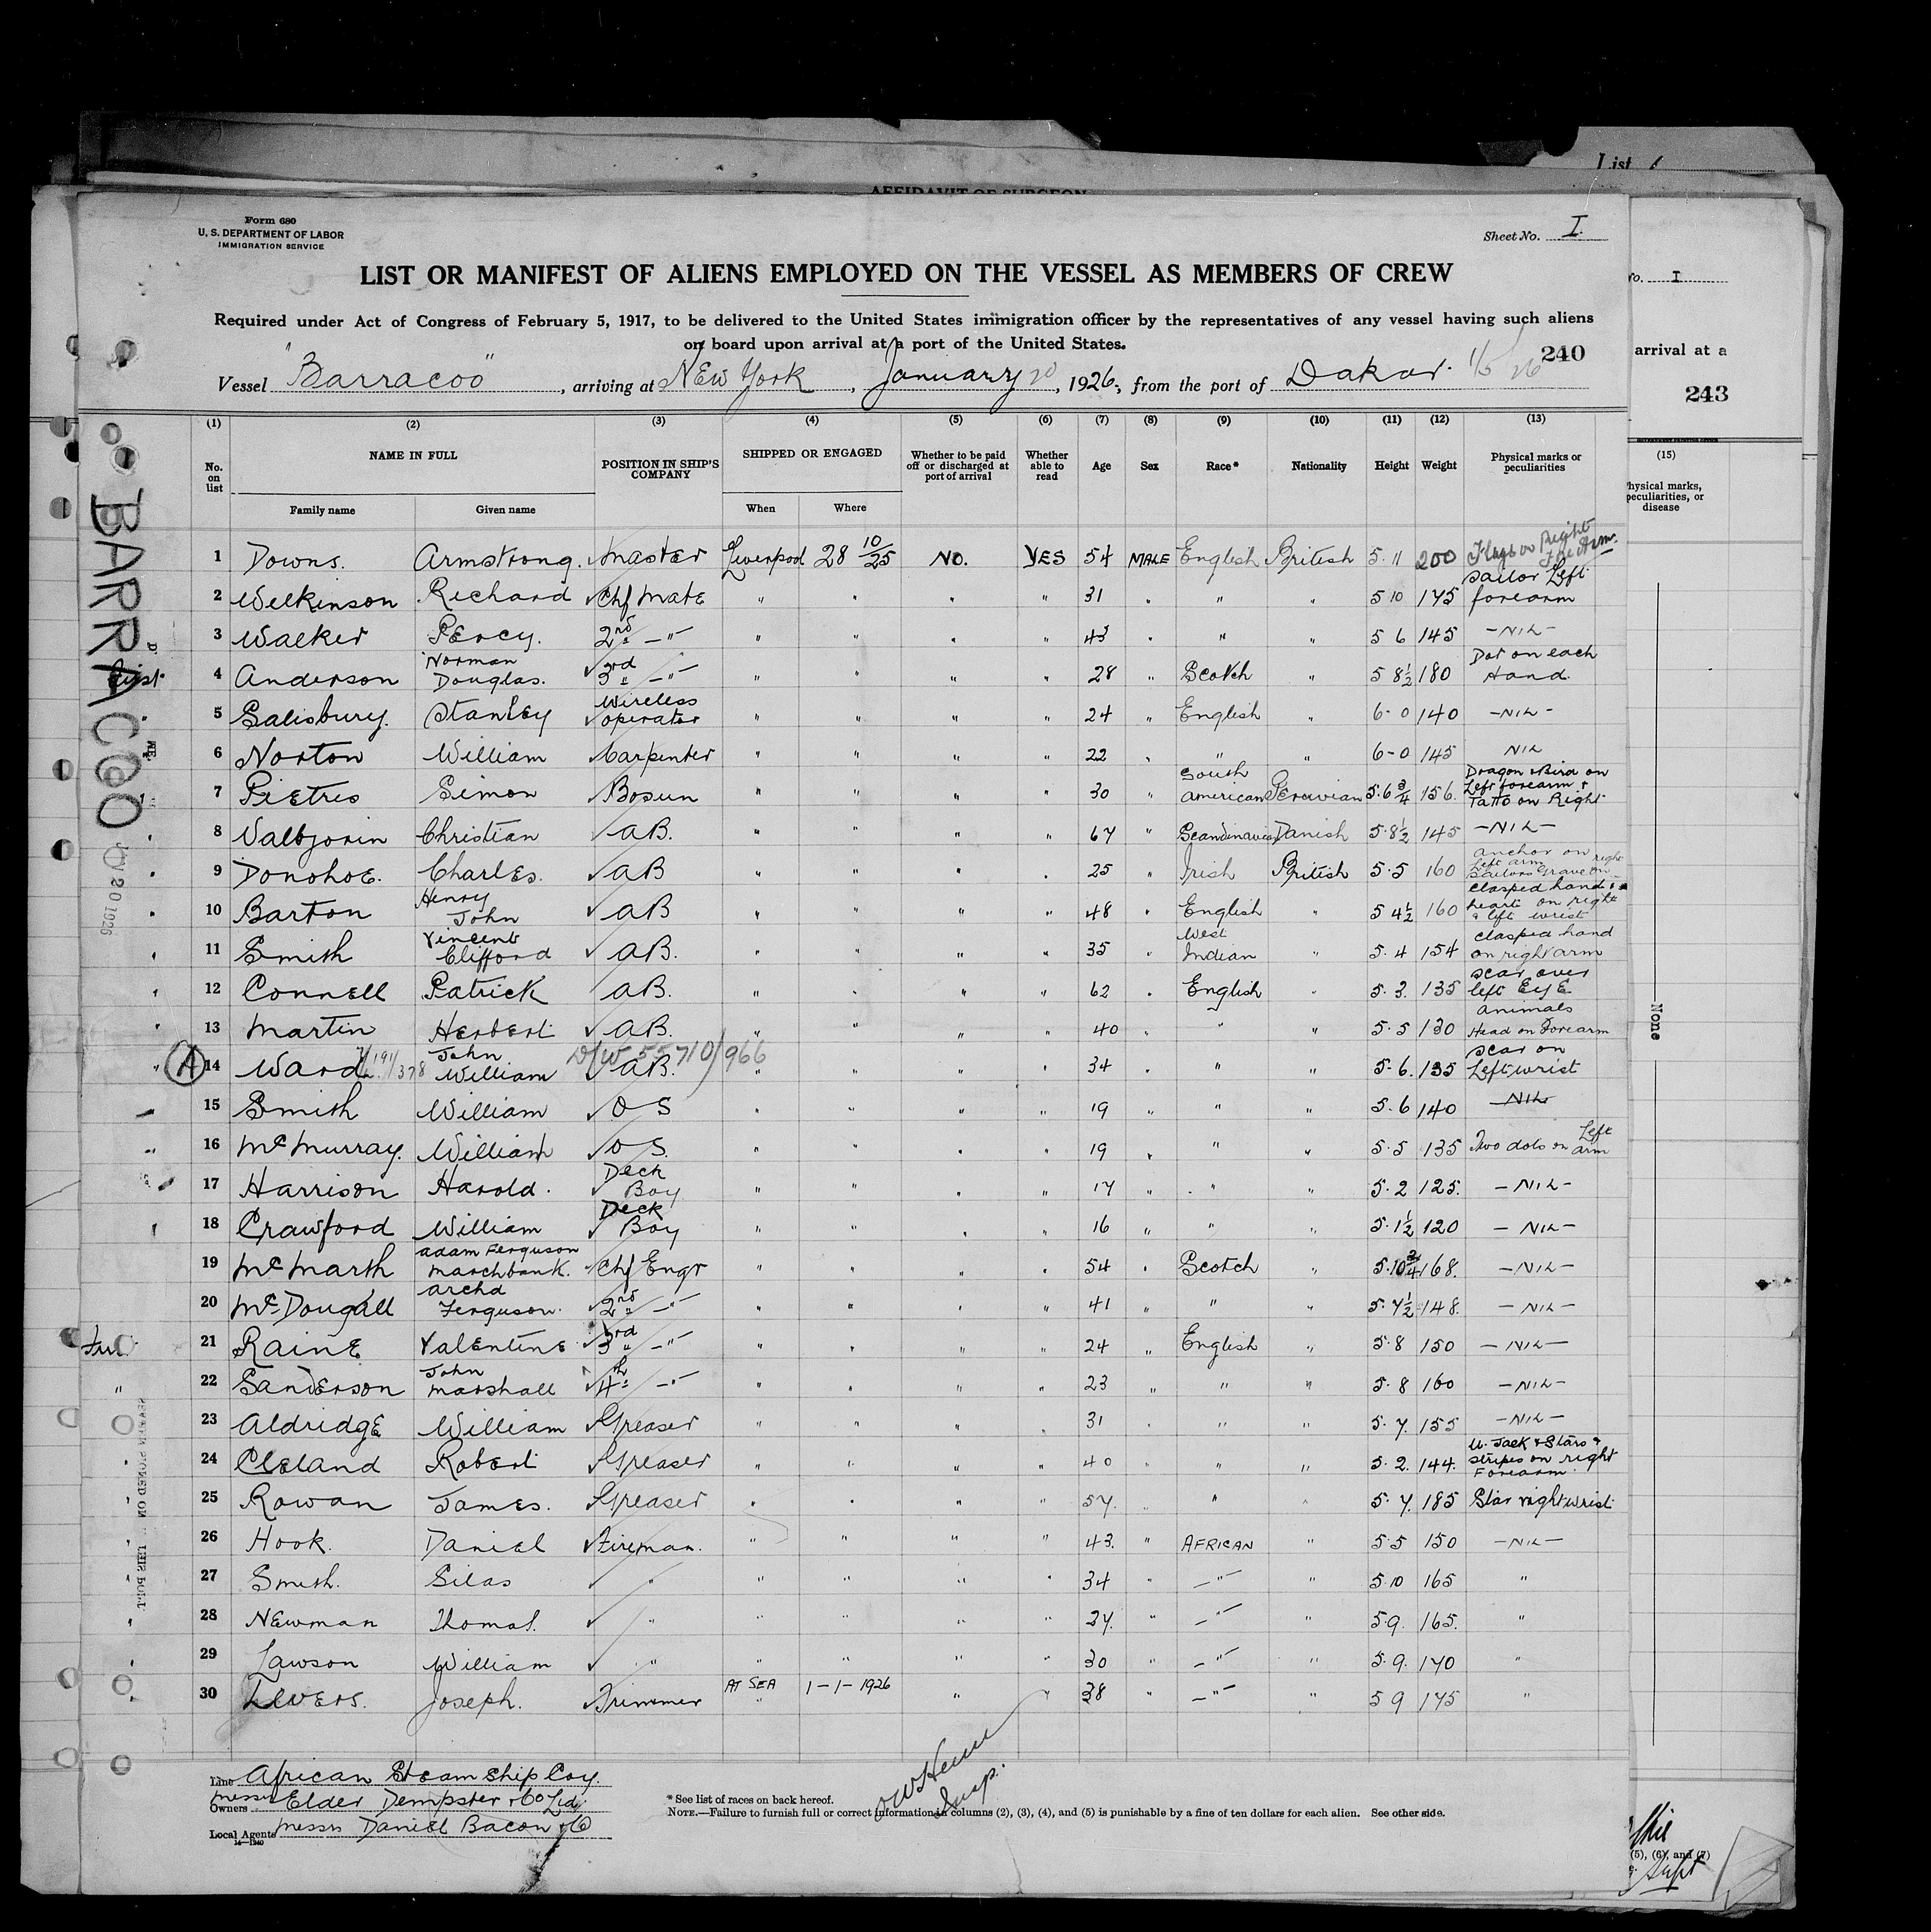 List
AFFIDAVIT OF SURGEON
Form 680
U. S. DEPARTMENT OF LABOR
IMMIGRATION SERVICE
Sheet No. I.
LIST OR MANIFEST OF ALIENS EMPLOYED ON THE VESSEL AS MEMBERS OF CREW
Required under Act of Congress of February 5, 1917, to be delivered to the United States immigration officer by the representatives of any vessel having such aliens
on board upon arrival at a port of the United States.
240
Vessel "Barracoo", arriving at New York, January 20, 1926, from the port of Dakar. 1/5 26
(1) (2) (3) (4) (5) (6) (7) (8) (9) (10) (11) (12) (13)
No. on list NAME IN FULL POSITION IN SHIP'S COMPANY SHIPPED OR ENGAGED Whether to be paid off or discharged at port of arrival Whether able to read Age Sex Race* Nationality Height Weight Physical marks or peculiarities
Family name Given name When Where
BARRACOO
1 Downs. Armstrong. Master Liverpool 28 10/25 NO. YES 54 MALE English British 5.11 200 Flags on Right Fore Arm.
2 Wilkinson Richard Chf Mate " " " " 31 " " " 5 10 175 Sailor Left forearm
3 Walker Percy. 2nd -"- " " " " 43 " " " 5 6 145 -NIL-
4 Anderson Norman Douglas. 3rd -"- " " " " 28 " Scotch " 5 8½ 180 Dot on each Hand.
5 Salisbury. Stanley Wireless operator " " " " 24 " English " 6-0 140 -NIL-
6 Norton William Carpenter " " " " 22 " " " 6-0 145 NIL
7 Pietris Simon Bosun " " " " 30 " South American Peruvian 5.6¾ 156. Dragon & Bird on Left forearm & Tatto on Right
8 Valbjorin Christian AB. " " " " 67 " Scandinavian Danish 5.8½ 145 -NIL-
9 Donohoe. Charles. AB " " " " 25 " Irish British 5.5 160 anchor on Left arm Sailors Grave on right
10 Barton Henry John AB " " " " 48 " English " 5 4½ 160 Clasped hand & heart on right & left wrist
11 Smith Vincent Clifford AB. " " " " 35 " West Indian " 5.4 154 Clasped hand on right arm
12 Connell Patrick AB. " " " " 62 " English " 5.3. 135 Scar over left EyE
13 Martin Herbert AB. " " " " 40 " " " 5.5 130 Animals Head on Forearm
A 14 Ward John William AB. D/W 55710/966 " " " " 34 " " " 5-6. 135 Scar on Left wrist
15 Smith William OS " " " " 19 " " " 5.6 140 -NIL-
16 McMurray. William OS. " " " " 19 " " " 5.5 135 Two dots on Left arm
17 Harrison Harold. Deck Boy " " " " 17 " " " 5.2 125. -NIL-
18 Crawford William Deck Boy " " " " 16 " " " 5.1½ 120 -NIL-
19 McMarth Adam Ferguson Marchbank. Chf Engr " " " " 54 " Scotch " 5.10¾ 168. -NIL-
20 McDougall Archd Ferguson. 2nd -"- " " " " 41 " " " 5.7½ 148. -NIL-
21 Raine Valentine 3rd -"- " " " " 24 " English " 5.8 150 -NIL-
22 Sanderson John Marshall 4th -"- " " " " 23 " " " 5.8 160 -NIL-
23 Aldridge William Greaser " " " " 31 " " " 5.7. 155 -NIL-
24 Cleland Robert Greaser " " " " 40 " " " 5.2. 144. U. Jack & Stars & Stripes on right Forearm
25 Rowan James. Greaser " " " " 57. " " " 5.7. 185 Star right wrist
26 Hook. Daniel Fireman. " " " " 43. " AFRICAN " 5.5 150 -NIL-
27 Smith. Silas " " " " " 34 " -"- " 5.10 165 "
28 Newman Thomas. " " " " " 37. " -"- " 5.9. 165. "
29 Lawson William " " " " " 30 " -"- " 5.9. 170 "
30 Livers. Joseph. Trimmer AT SEA 1-1-1926 " " 38 " -"- " 5 9 175 "
Line African Steam Ship Coy.
Owners Messrs Elder Dempster & Co Ltd
Local Agents Messrs Daniel Bacon & Co
14—1940
* See list of races on back hereof.
NOTE.—Failure to furnish full or correct information in columns (2), (3), (4), and (5) is punishable by a fine of ten dollars for each alien. See other side.
No. I
arrival at a
243
(15)
Physical marks, peculiarities, or disease
None
(5), (6), and (7)